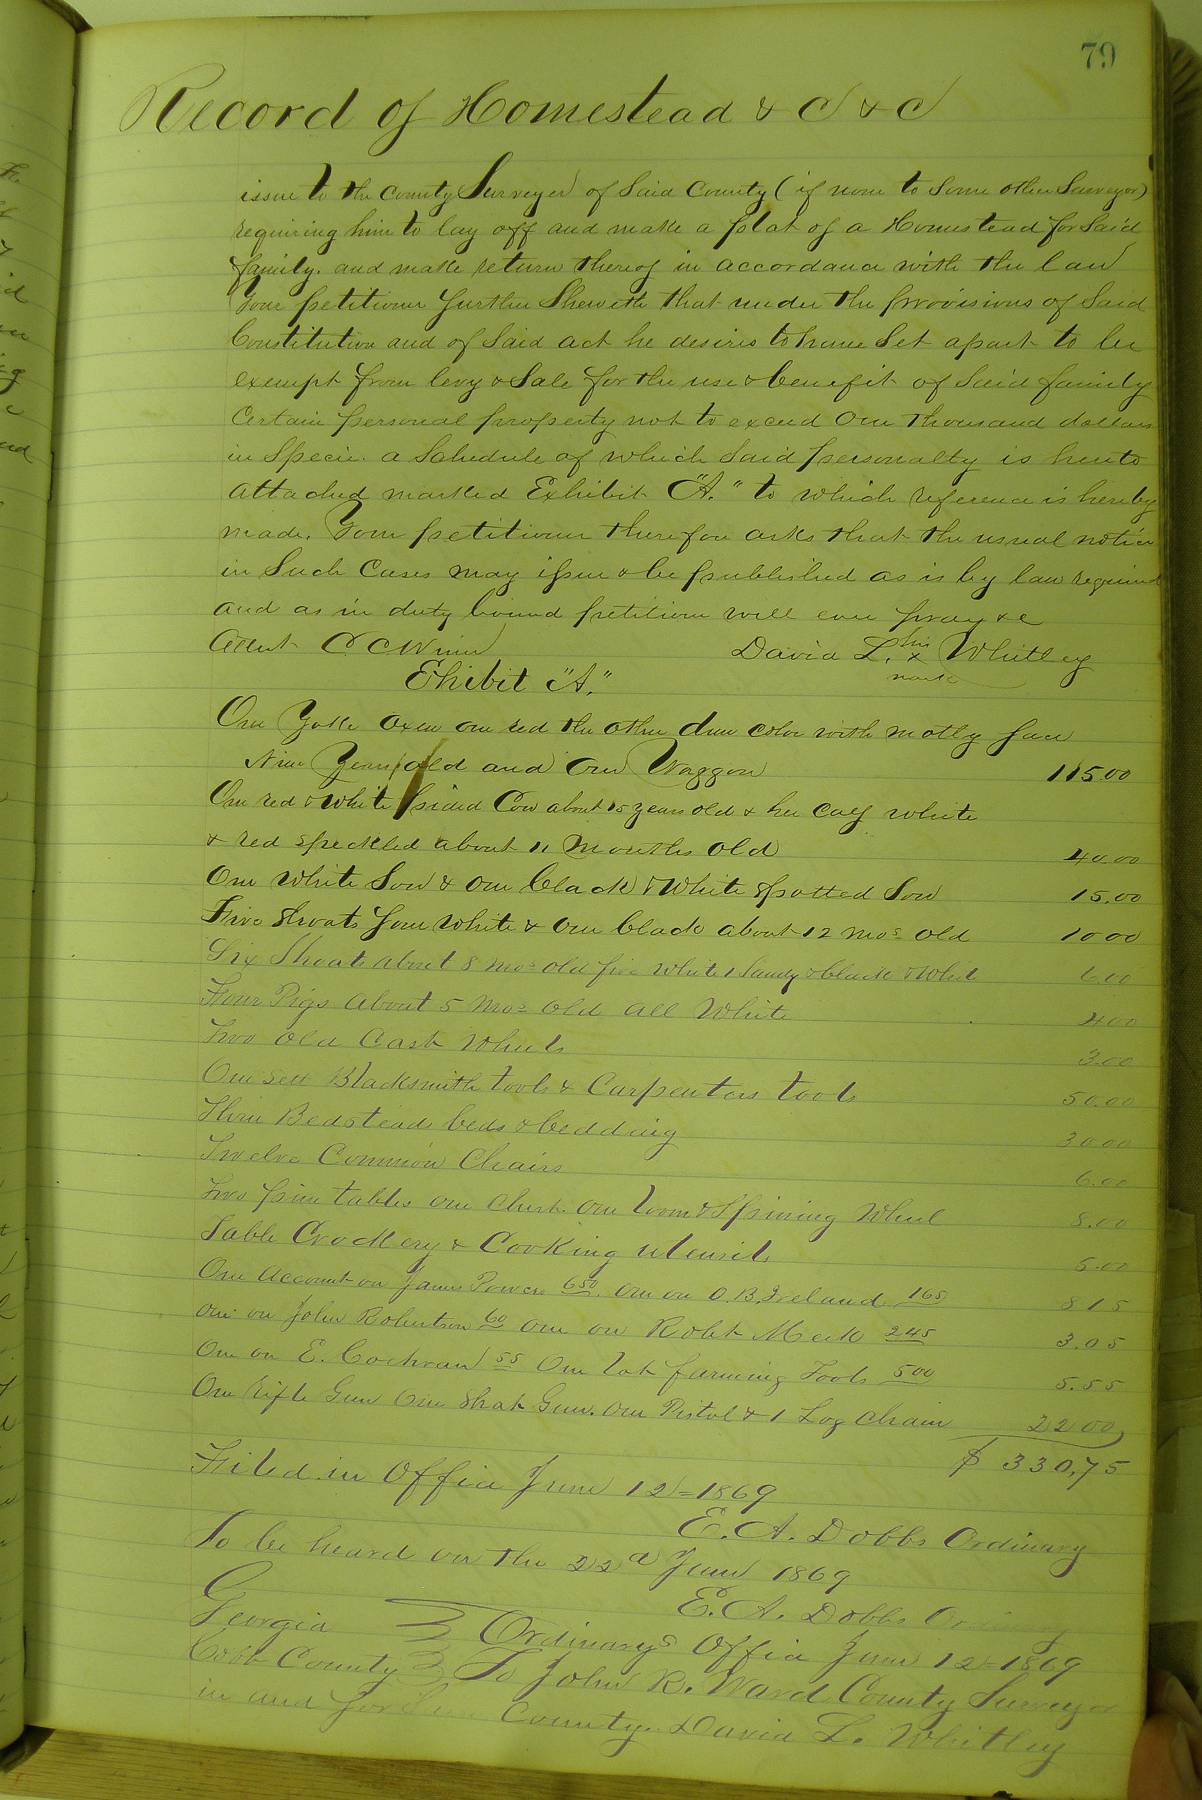 79
Record of Homestead & C & C
issue to the County Surveyer of Said County (if none to Some other Surveyor)
requiring him to lay off and make a plat of a Homestead for Said
family. and make return thereof in accordance with the law
Your petitioner further Sheweth that under the provisions of Said
Constitution and of Said act he desires to have Set apart to be
exempt from levy & Sale for the use & benefit of Said family
Certain personal property not to exceed One Thousand dollars
in Specie. a Schedule of which Said personalty is hereto
attached marked Exhibit "A." to which reference is hereby
made. Your petitioner therefore asks that the usual notice
in Such Cases may issue & be published as is by law required
and as in duty bound petitioner will ever pray &c
Attest C C Winn David L. his x mark Whitley
Ehibit "A."
One Yoke Oxen one red the other dun color with motly face
Nine Years old and One Waggon 115.00
One red & White sided Cow about 15 years old & her calf white
& red speckled about 11 Months old 40.00
One White Sow & one Black & White Spotted Sow 15.00
Five Shoats four White & one black about 12 mos old 10 00
Six Shoats about 8 mos old five white 1 Sandy & black & White 6.00
Four Pigs About 5 Mos old all White 4 00
Two old Cast Wheels 3.00
One Sett Blacksmith tools & Carpenters tools 50.00
Three Bedsteads beds & bedding 30 00
Twelve Common Chairs 6.00
Two pine tables one Chest. One loom & Spinning Wheel 8.00
Table Crockery & Cooking utensils 5.00
One Account on James Powers 6 50. One on O. B. Ireland 1 65 8 15
One on John Robertson 60 one on Robt Meek 2 45 3.05
One on E. Cochran 55 One lot farming Tools 5 00 5.55
One rifle Gun One Shot Gun. One Pistol & 1 Log Chain 22 00
$ 330.75
Filed in Office June 12 - 1869
E. A. Dobbs Ordinary
To be heard on the 22d June 1869
E. A. Dobbs Ordinary
Georgia } Ordinarys Office June 12 - 1869
Cobb County } To John R. Ward County Surveyor
in and for Said County. David L. Whitley